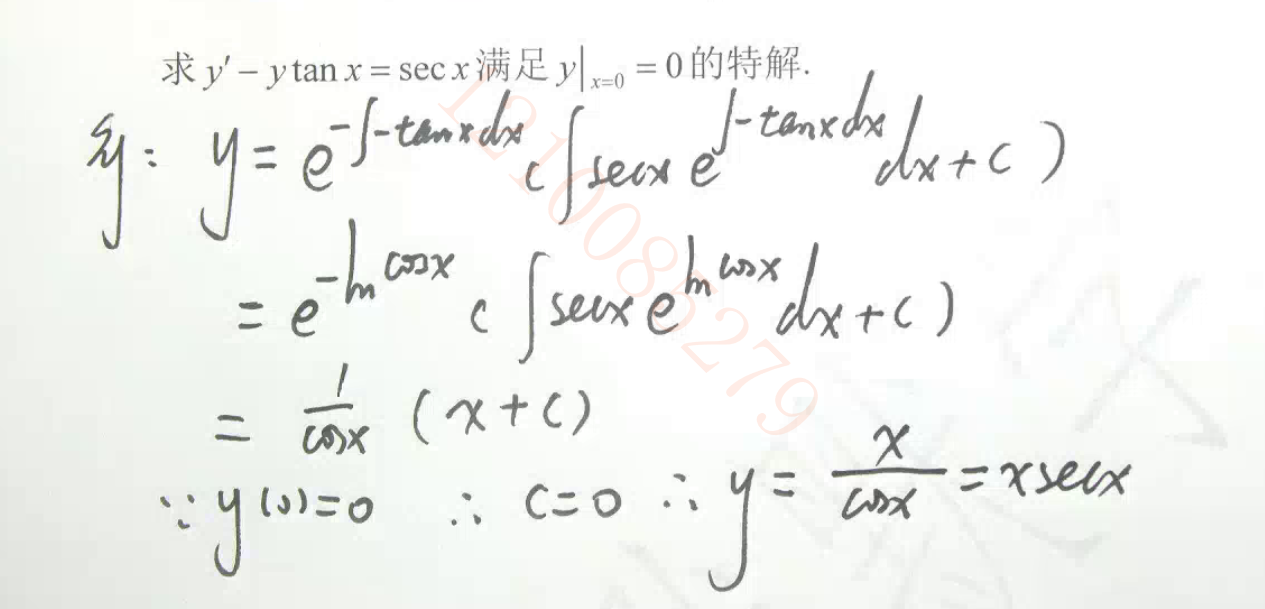 求 y′ − y tan x = sec x 满足 y|ₓ₌₀ = 0 的特解.
解: y = e^{-∫-tanxdx} (∫secx e^{∫-tanxdx} dx + C)
= e^{-ln cosx} (∫secx e^{ln cosx} dx + C)
= 1/cosx (x + C)
∵ y(0)=0 ∴ C=0 ∴ y = x/cosx = xsecx
1210085279